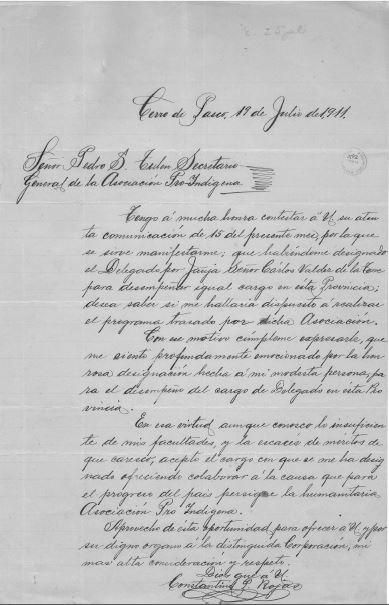 Cerro de Pasco, 19 de Julio de 1,911.
Señor Pedro S. Zulen Secretario
General de la Asociación Pro-Indígena
Tengo á mucha honra contestar á U. su aten
ta comunicación de 15 del presente mes, por la que
se sirve manifestarme; que habiéndome designado
el Delegado por Jauja Señor Cárlos Valdez de la
para desempeñar igual cargo en esta Provincia;
desea saber si me hallaría dispuesto á realizar
el programa trazado por dicha Asociación.
Con su motivo cúmpleme expresarle, que
me siento profundamente emocionado por la hon
rosa designación hecha á mi modesta persona, pa
ra el desempeño del cargo de Delegado en esta Pro
vincia.
En esa virtud, aunque conozco lo insuficien
te de mis facultades, y la escacio de meritos de
que carezco; acepto el cargo con que se me ha desig
nado ofreciendo colaborar á la causa que para
el progreso del país persigue la humanitaria
Asociación Pro Indígena.
Aprovecho de esta oportunidad para ofrecer á U. y por
su digno organo á la distinguida Corporación, mi
mas alta consideración y respeto.
Dios gue á U.
Constantino P. Rojas